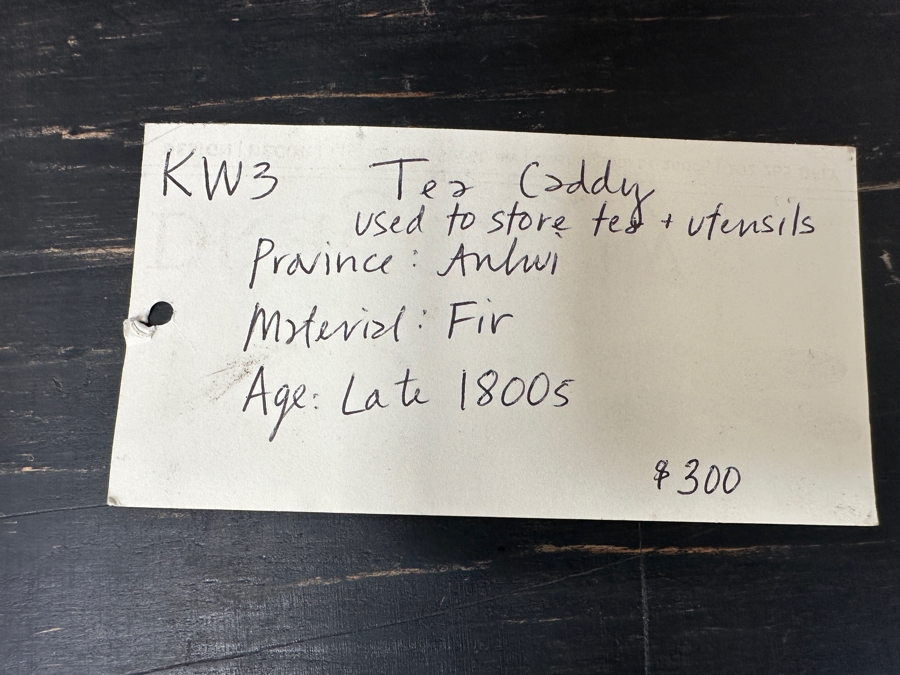 KW3 Tea Caddy
used to store tea + utensils
Province: Anhui
Material: Fir
Age: Late 1800s
$300